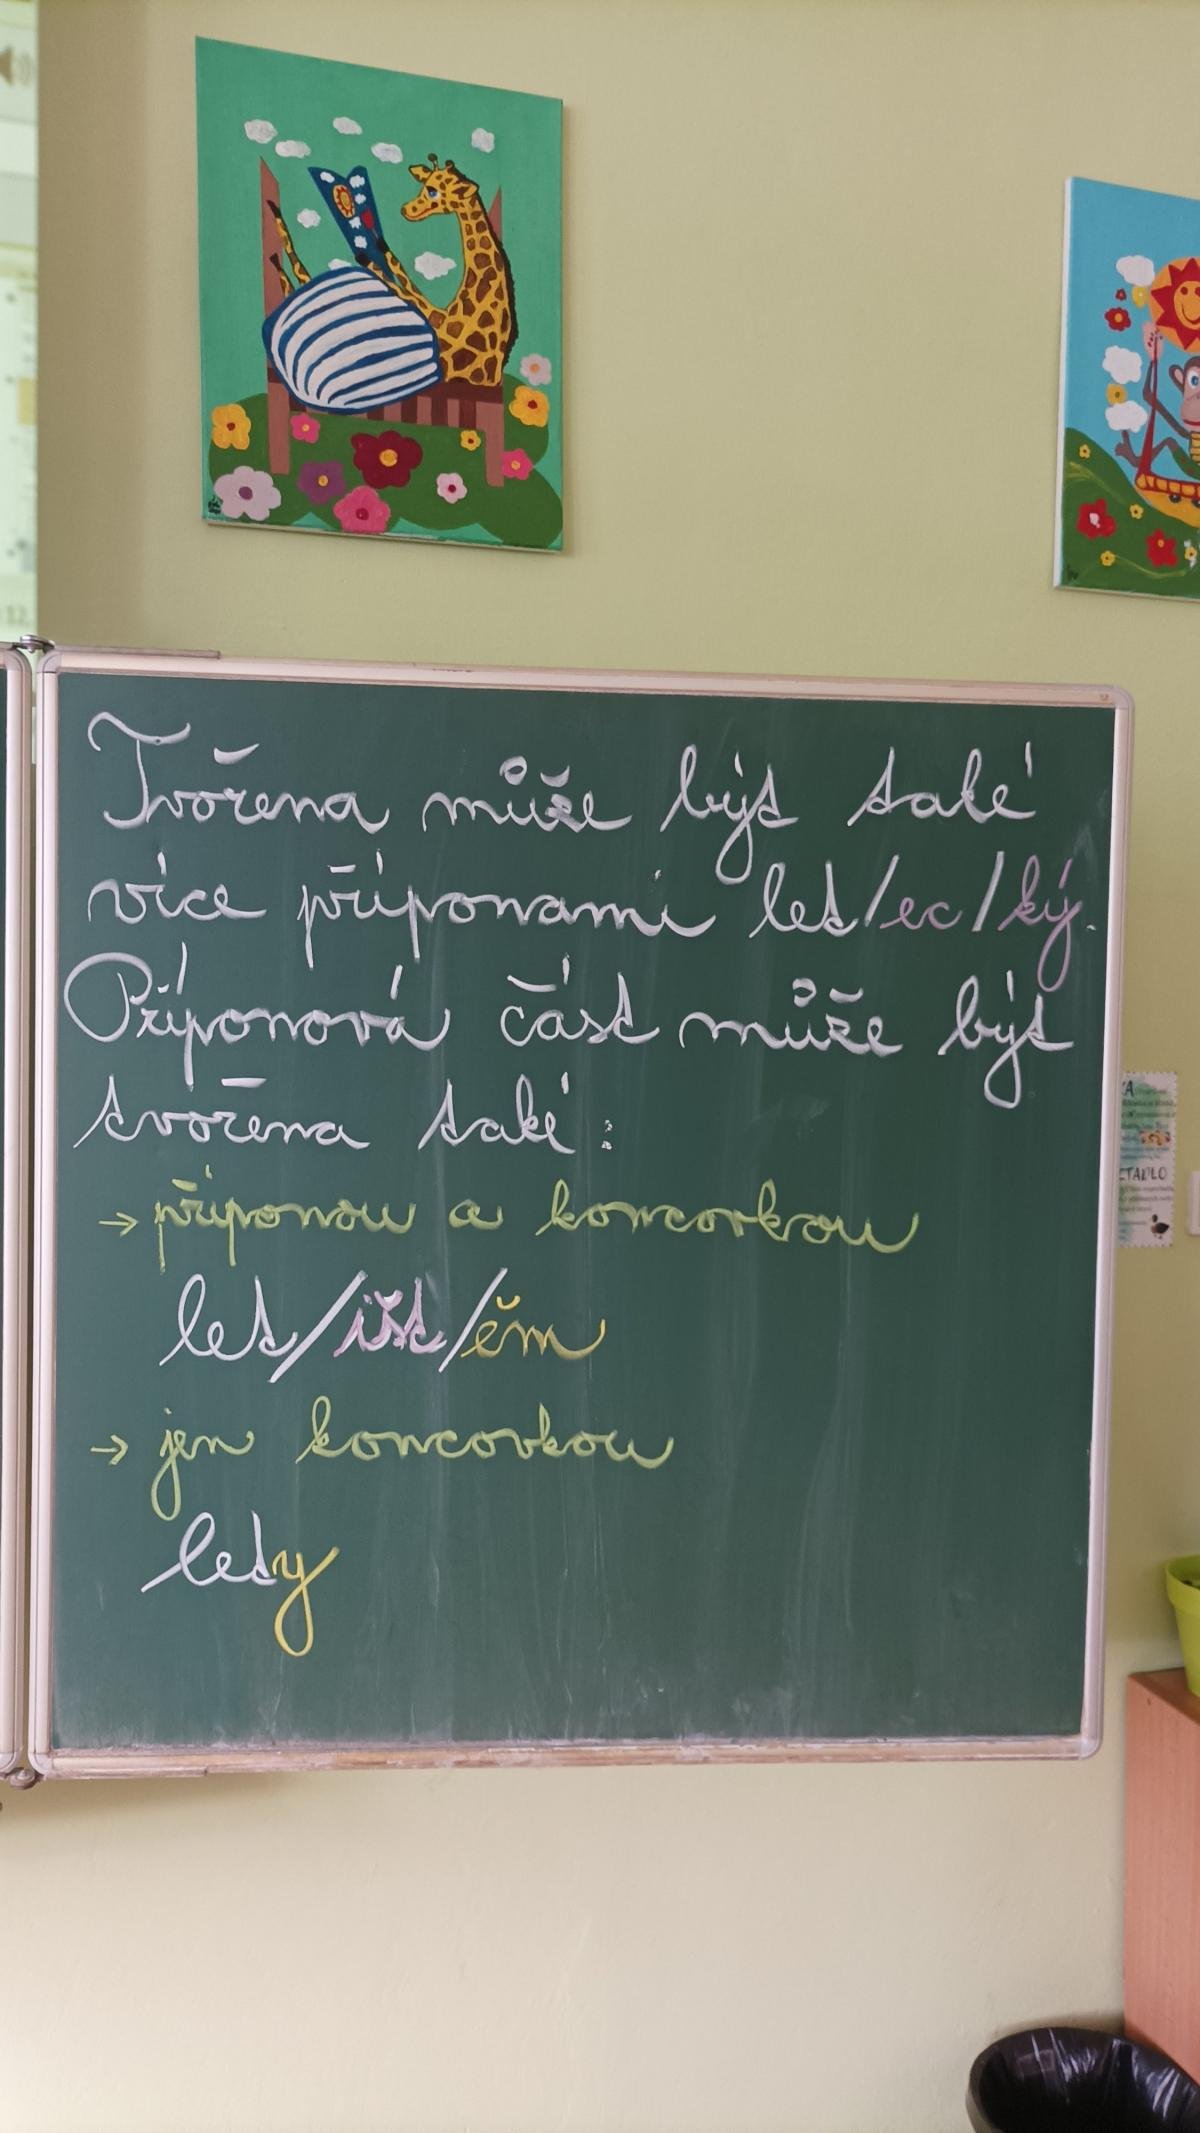 Tvořena může být také
více příponami let/ec/ký.
Příponová část může být
tvořena také:
→ příponou a koncovkou
let/išt/ěm
→ jen koncovkou
lety
12.
KA
ČTADLO